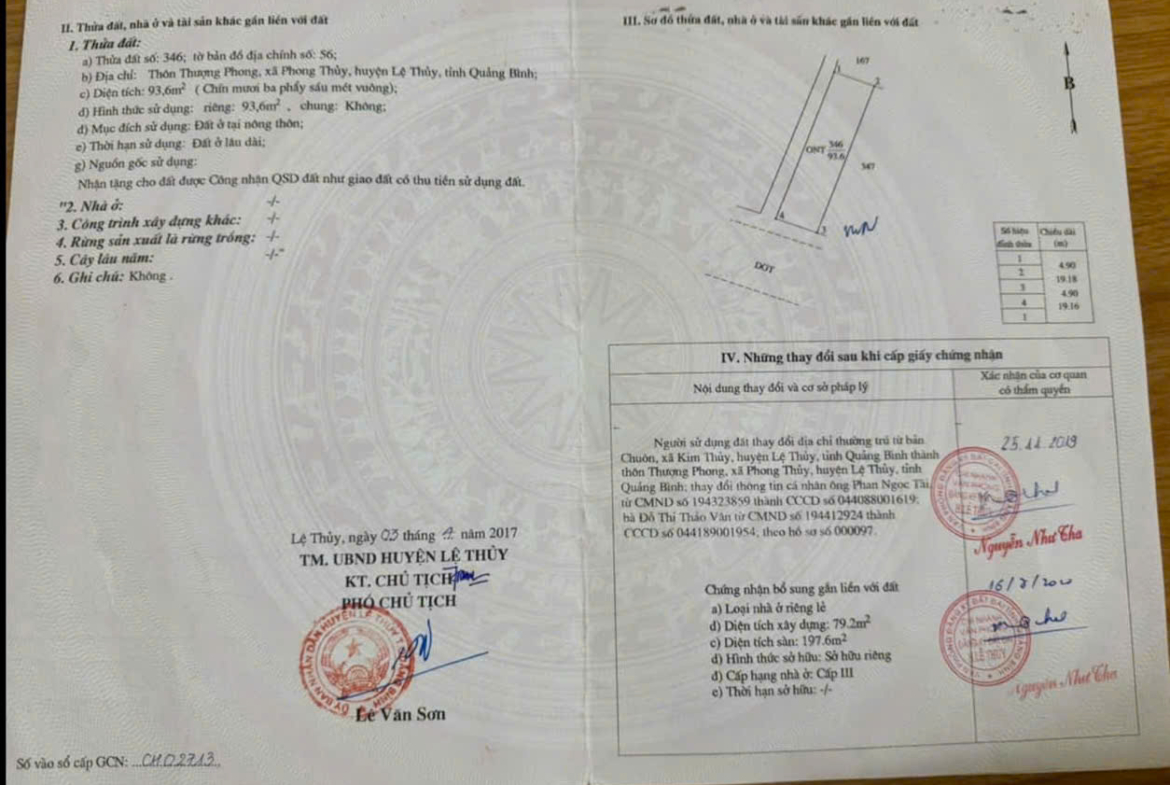 II. Thửa đất, nhà ở và tài sản khác gắn liền với đất
1. Thửa đất:
a) Thửa đất số: 346; tờ bản đồ địa chính số: 56;
b) Địa chỉ: Thôn Thượng Phong, xã Phong Thủy, huyện Lệ Thủy, tỉnh Quảng Bình;
c) Diện tích: 93,6m² ( Chín mươi ba phẩy sáu mét vuông);
d) Hình thức sử dụng: riêng: 93,6m² , chung: Không;
đ) Mục đích sử dụng: Đất ở tại nông thôn;
e) Thời hạn sử dụng: Đất ở lâu dài;
g) Nguồn gốc sử dụng:
Nhận tặng cho đất được Công nhận QSD đất như giao đất có thu tiền sử dụng đất.
"2. Nhà ở: -/-
3. Công trình xây dựng khác: -/-
4. Rừng sản xuất là rừng trồng: -/-
5. Cây lâu năm: -/-"
6. Ghi chú: Không .
Lệ Thủy, ngày 03 tháng năm 2017
TM. UBND HUYỆN LỆ THỦY
KT. CHỦ TỊCH
PHÓ CHỦ TỊCH
Lê Văn Sơn
Số vào sổ cấp GCN: ...CH02713...
III. Sơ đồ thửa đất, nhà ở và tài sản khác gắn liền với đất
B
167
1
2
ONT 346
93.6
347
4
3
DGT
Số hiệu đỉnh thửa
Chiều dài (m)
1
4.90
2
19.18
3
4.90
4
19.16
1
IV. Những thay đổi sau khi cấp giấy chứng nhận
Nội dung thay đổi và cơ sở pháp lý
Xác nhận của cơ quan
có thẩm quyền
Người sử dụng đất thay đổi địa chỉ thường trú từ bản
Chuôn, xã Kim Thủy, huyện Lệ Thủy, tỉnh Quảng Bình thành
thôn Thượng Phong, xã Phong Thủy, huyện Lệ Thủy, tỉnh
Quảng Bình; thay đổi thông tin cá nhân ông Phan Ngọc Tài
từ CMND số 194323859 thành CCCD số 044088001619;
bà Đỗ Thị Thảo Vân từ CMND số 194412924 thành
CCCD số 044189001954, theo hồ sơ số 000097.
25.11.2019
Nguyễn Như Tha
Chứng nhận bổ sung gắn liền với đất
a) Loại nhà ở riêng lẻ
d) Diện tích xây dựng: 79.2m²
c) Diện tích sàn: 197.6m²
d) Hình thức sở hữu: Sở hữu riêng
đ) Cấp hạng nhà ở: Cấp III
e) Thời hạn sở hữu: -/-
Nguyễn Như Tha